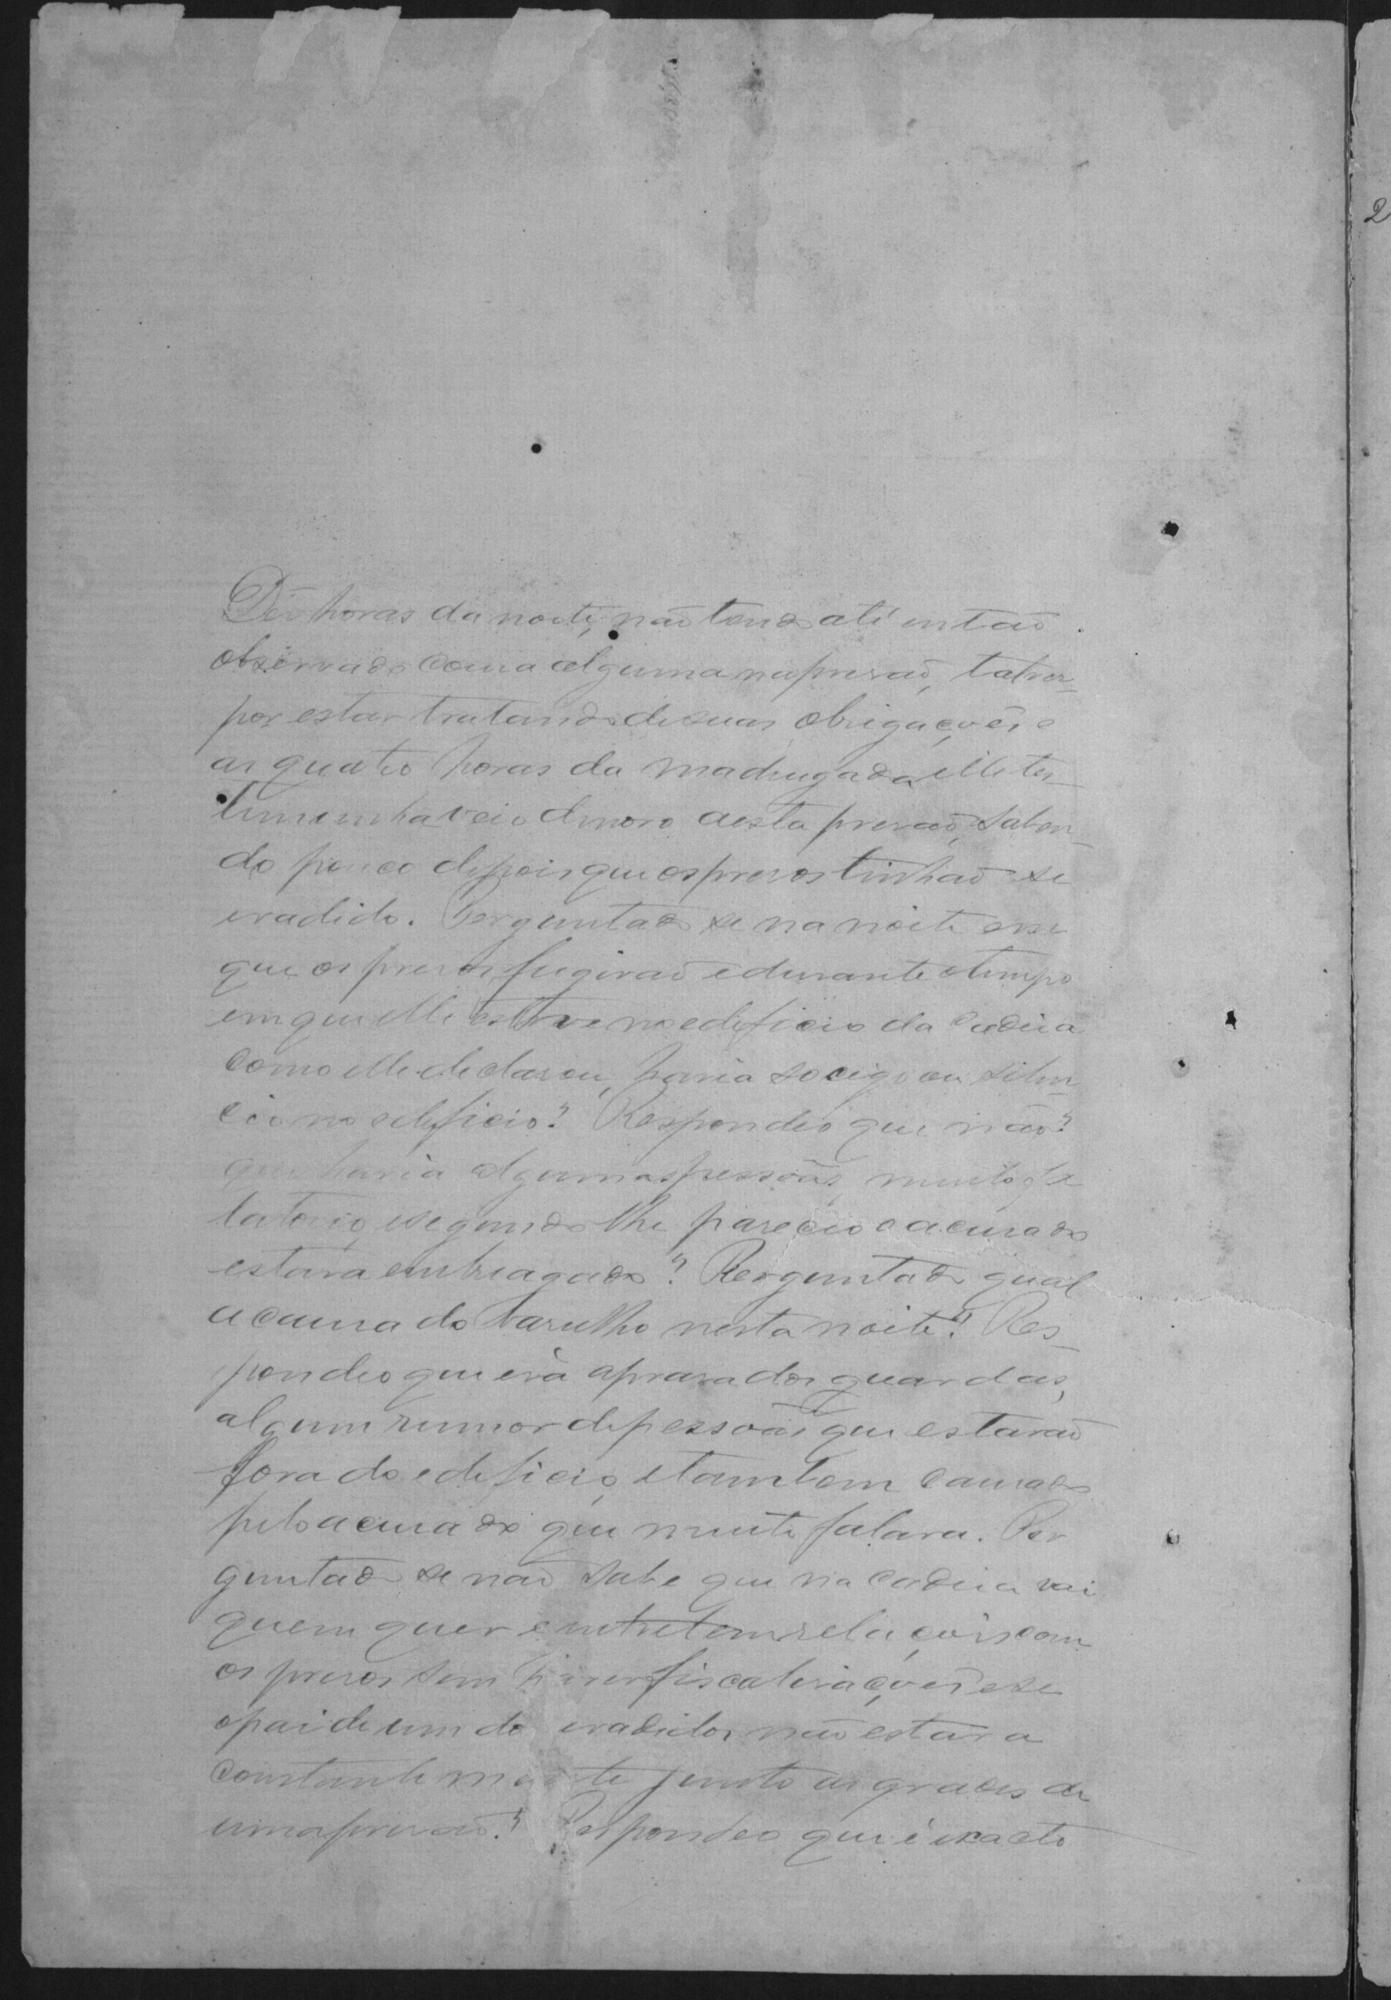 Dês horas da noite, não tendo até então
observado cousa alguma na prisaõ, talves
por estar tratando de suas obrigações e
as quatro horas da madrugada elle tes-
timunha veio de novo a esta prisaõ, saben-
do pouco depois que os presos tinhaõ se
evadido. Perguntado se na noite em
que os presos fugiraõ e durante o tempo
em que elle esteve no edificio da Cadeia
como elle declarou, havia socego ou silen-
cio no edificio? Respondeo que não?
que havia algumas pessoas, muito
latorio, e segundo lhe pareceo o acusado
estava embriagado? Perguntado qual
a causa do barulho nesta noite? Res-
pondeo que era a prosa dos guardas,
algum rumor de pessoas que estavaõ
fora do edificio, e tambem causado
pelo acusado que muito falava. Per
guntado se naõ sabe que na Cadeia vai
quem quer e entretem relações com
os presos sem haver fiscalisações e se
o pai de um do evadidos não estava
constantemente junto as grades de
uma prisaõ? Respondeo que é exacto
2